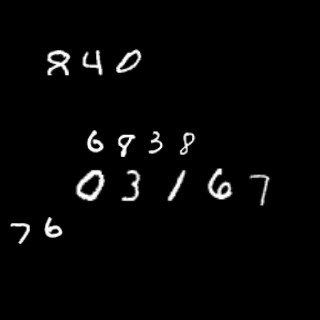 840
6838
03167
76